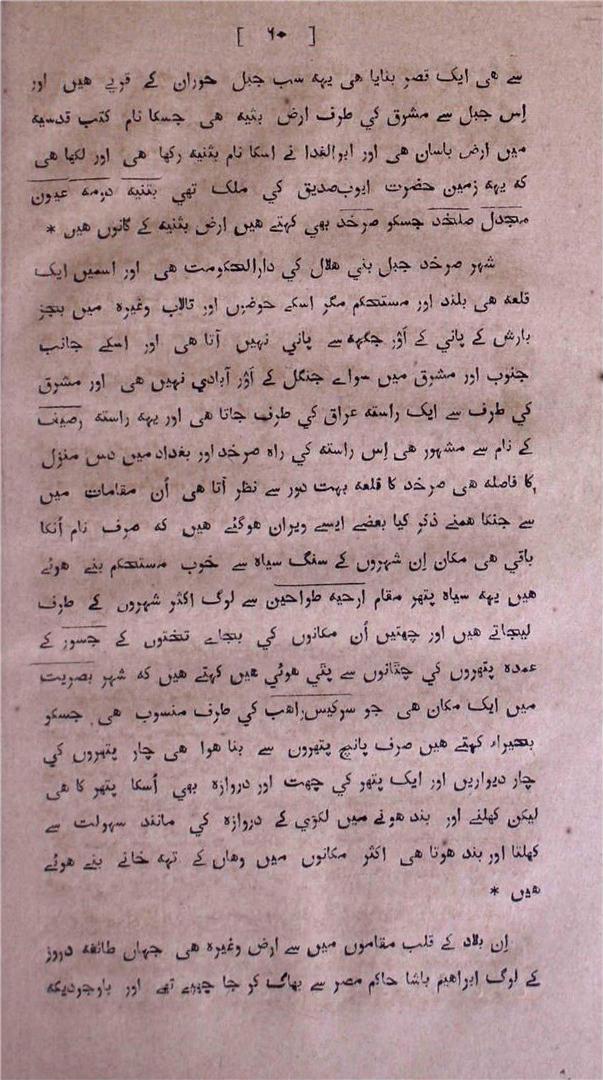 [ ٦٠ ]
سے هی ایک قصر بنایا هی یہہ سب جبل حوران کے قریے هیں اور
اِس جبل سے مشرق کي طرف ارض بثنیه هی جسکا نام کتب قدسیه
میں ارض باسان هی اور ابوالفدا نے اسکا نام بثنیه رکھا هی اور لکھا هی
که یہہ زمین حضرت ایوب صدیق کي ملک تهي بثنیه درمه عیون
مجدل صلخد جسکو صرخد بهي کہتے هیں ارض بثنیه کے گانوں هیں *
شہر صرخد جبل بني هلال کي دارالحکومت هی اور اسمیں ایک
قلعه هی بلند اور مستحکم مگر اسکے حوضوں اور تالاب وغیره میں بجز
بارش کے پاني کے اَوْر جگہه سے پاني نہیں آتا هی اور اسکے جانب
جنوب اور مشرق میں سواے جنگل کے اَوْر آبادي نہیں هی اور مشرق
کي طرف سے ایک راسته عراق کي طرف جاتا هی اور یہه راسته رصیف
کے نام سے مشہور هی اِس راسته کي راه صرخد اور بغداد میں دس منزل
کا فاصله هی صرخد کا قلعه بہت دور سے نظر آتا هی اُن مقامات میں
سے جنکا همنے ذکر کیا بعضے ایسے ویران هوگئے هیں که صرف نام اُنکا
باقي هی مکان اِن شہروں کے سنگ سیاه سے خوب مستحکم بنے هوئے
هیں یہه سیاه پتهر مقام ارحیه طواحین سے لوگ اکثر شہروں کے طرف
لیجاتے هیں اور چهتیں اُن مکانوں کي بجاے تختوں کے جسور کے
عمده پتهروں کي چٹانوں سے پٹي هوئي هیں کہتے هیں که شہر بصریت
میں ایک مکان هی جو سرکیس راهب کي طرف منسوب هی جسکو
بحیراء کہتے هیں صرف پانچ پتهروں سے بنا هوا هی چار پتهروں کي
چار دیواریں اور ایک پتهر کي چهت اور دروازه بهي اُسکا پتهر کا هی
لیکن کهلنے اور بند هونے میں لکڑي کے دروازه کي مانند سہولت سے
کهلتا اور بند هوتا هی اکثر مکانوں میں وهاں کے تہه خانے بنے هوئے
هیں *
اِن بلاد کے قلب مقاموں میں سے ارض وغیره هی جہاں طائفه دروز
کے لوگ ابراهیم باشا حاکم مصر سے بهاگ کر جا چهپے تهے اور باوجودیکه